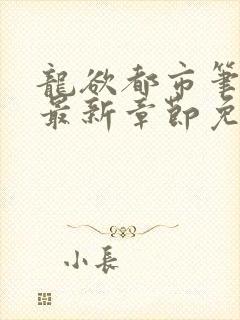 龍欲都市筆
最新章節免
小長